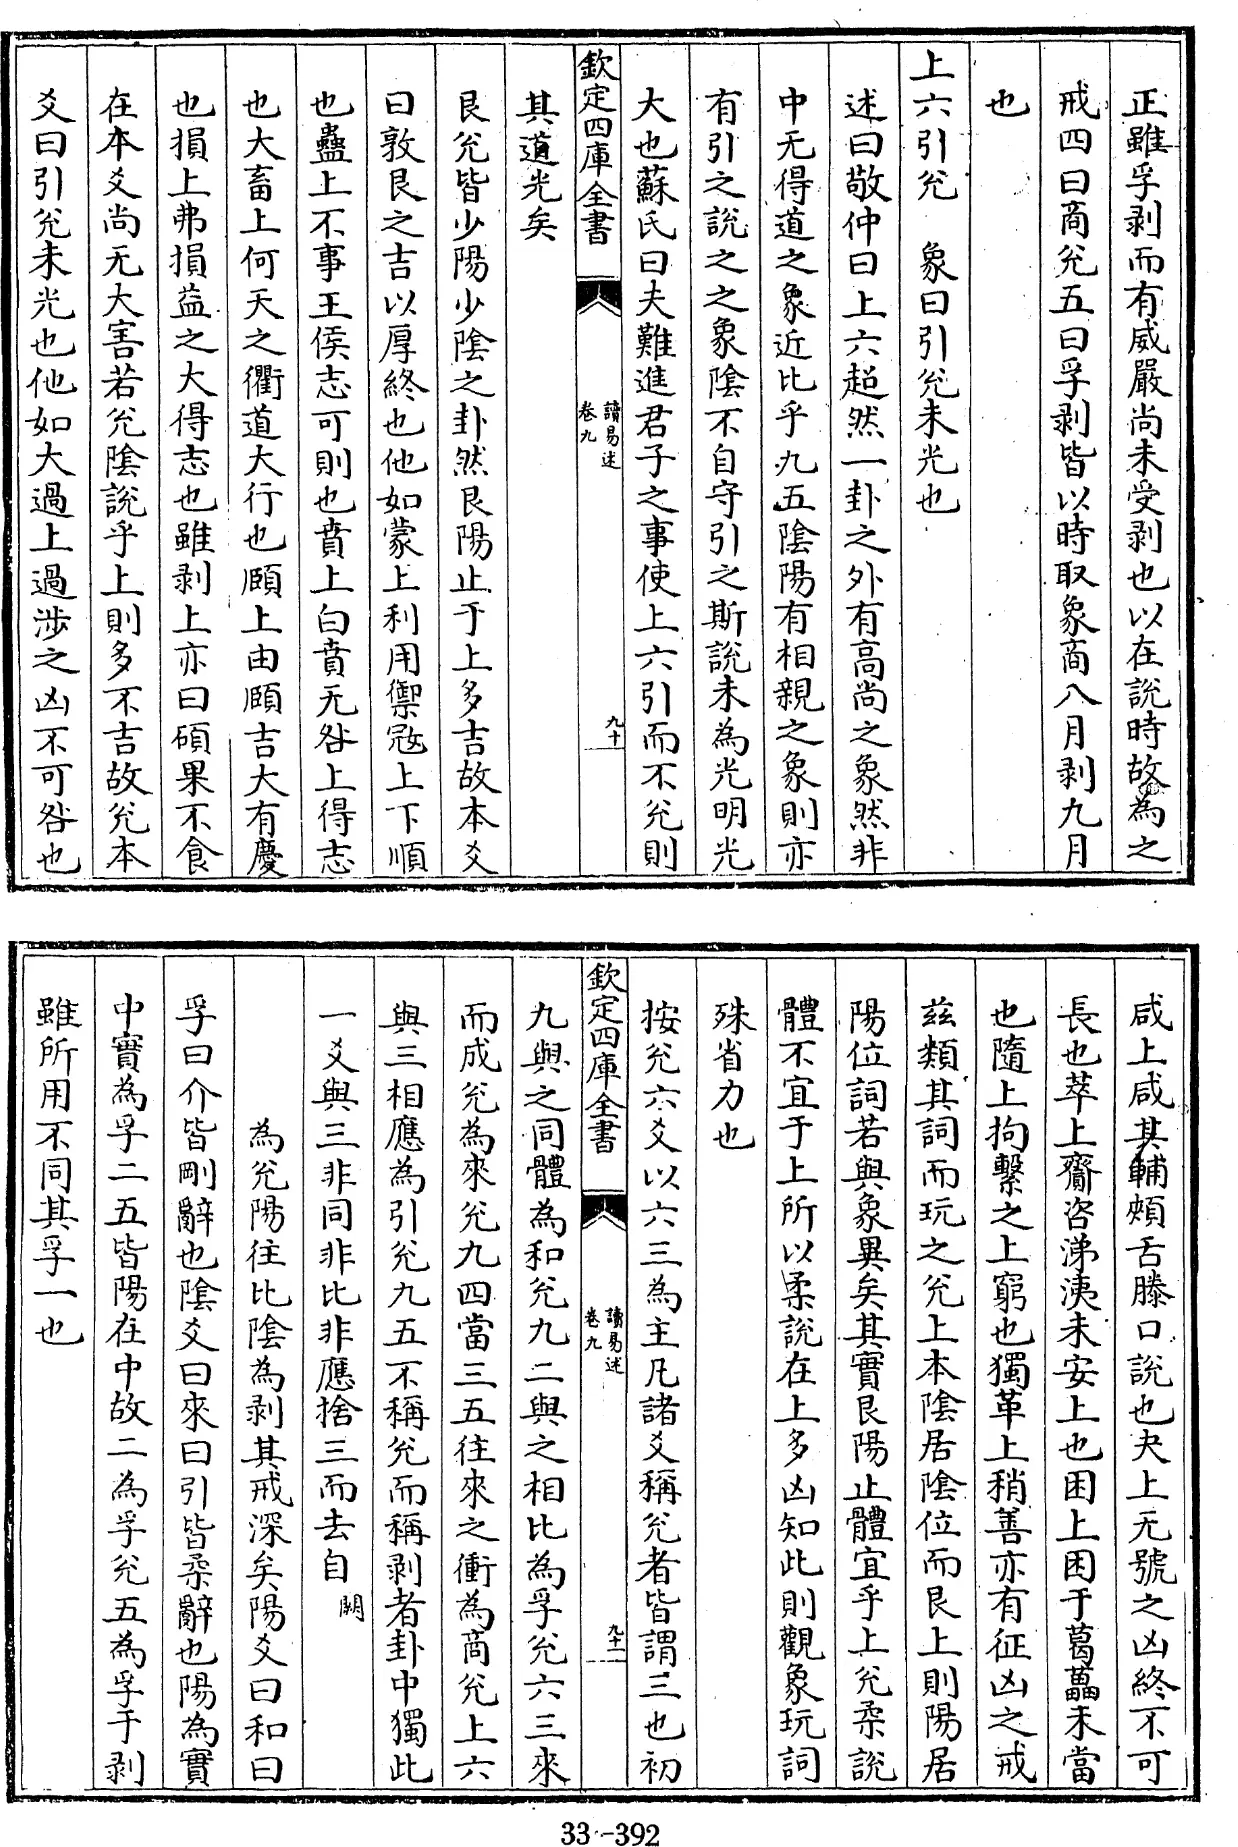 正雖孚剥而有威嚴尚未受剥也以在説時故為之
戒四曰商兊五曰孚剥皆以時取象商八月剥九月
也
上六引兊　象曰引兊未光也
述曰敬仲曰上六超然一卦之外有高尚之象然非
中无得道之象近比乎九五陰陽有相親之象則亦
有引之説之之象陰不自守引之斯説未為光明光
大也蘇氏曰夫難進君子之事使上六引而不兊則
欽定四庫全書
讀易述
卷九
九十
其道光矣
艮兊皆少陽少陰之卦然艮陽止于上多吉故本爻
曰敦艮之吉以厚終也他如蒙上利用禦冦上下順
也蠱上不事王侯志可則也賁上白賁无咎上得志
也大畜上何天之衢道大行也頤上由頤吉大有慶
也損上弗損益之大得志也雖剥上亦曰碩果不食
在本爻尚无大害若兊陰説乎上則多不吉故兊本
爻曰引兊未光也他如大過上過涉之凶不可咎也
咸上咸其輔頰舌滕口説也夬上无號之凶終不可
長也萃上齎咨涕洟未安上也困上困于葛藟未當
也隨上拘繫之上窮也獨革上稍善亦有征凶之戒
兹類其詞而玩之兊上本陰居陰位而艮上則陽居
陽位詞若與象異矣其實艮陽止體宜乎上兊柔説
體不宜于上所以柔説在上多凶知此則觀象玩詞
殊省力也
按兊六爻以六三為主凡諸爻稱兊者皆謂三也初
欽定四庫全書
讀易述
卷九
九十一
九與之同體為和兊九二與之相比為孚兊六三來
而成兊為來兊九四當三五往來之衝為商兊上六
與三相應為引兊九五不稱兊而稱剥者卦中獨此
一爻與三非同非比非應捨三而去自闕
為兊陽往比陰為剥其戒深矣陽爻曰和曰
孚曰介皆剛辭也陰爻曰來曰引皆柔辭也陽為實
中實為孚二五皆陽在中故二為孚兊五為孚于剥
雖所用不同其孚一也
33-392